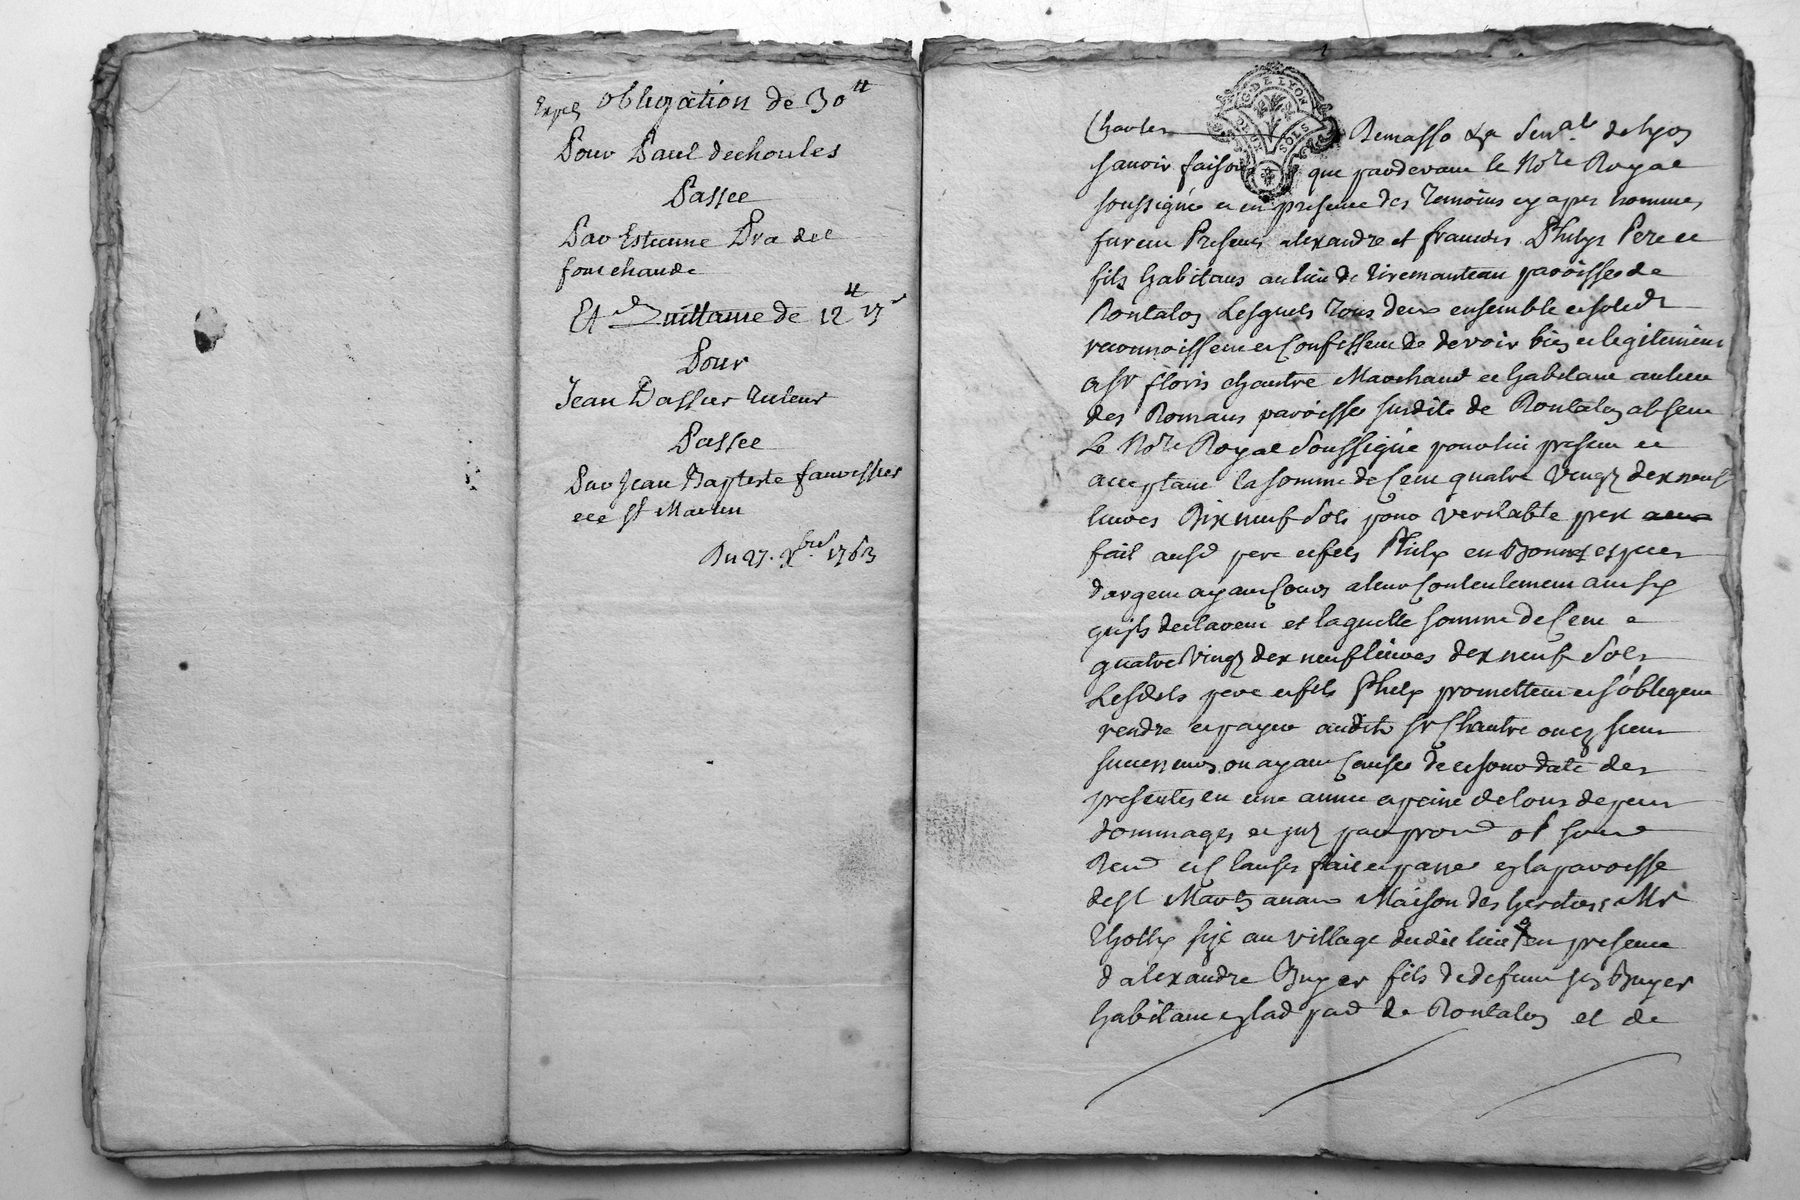 Exped obligation de 30tt
Pour Paul dechoules
Passee
Par Estienne Pra dit
fontchaude
Et d quittance de 12tt 15s
Pour
Jean Dassier tuteur
Passee
Par Jean Baptiste
St Martin
Du 27. xbre 1763
G. DE LYON
DEUX SOLS
Charles Demasso La Senale. de lyon
sauoir faison que pardevant le Nore Royal
soussigné et en presence des temoins cy apres nommes
furent Presens alexandre et francois Philip Pere et
fils habitans au lieu de tiremanteau paroisse de
Rontalon Lesquels tous deux ensemble
reconnoissent et Confessent de devoir bien et legitimement
a Sr floris chantre Marchand et habitant au lieu
des Romans paroisse susdite de Rontalon absent
Le Nore Royal Soussigné pour lui present et
acceptant la somme de Cent quatre vingt dix neuf
livres Dix neuf Sols pour veritable pret
fait ausd pere et fils Philip en Bonnes especes
dargent ayant Cours a leur Contentement ainsy
quils declarent et laquelle somme de Cent
quatre vingt dix neuf livres dix neuf Sols
Lesdits pere et fils Philip promettent et s'obligent
rendre et payer audit Sr Chantre ou es siens
successeurs ou ayant Cause de ce jour date des
presentes en une annee a peine de tous depens
dommages et par prom ob soum
Ren et Clauses fait et passe en la paroisse
de St Martin Maison des heritiers Mr
Tholly size au village dudit lieu en presence
d alexandre Buyer fils de defunt Buyer
habitant en lad par de Rontalon et de